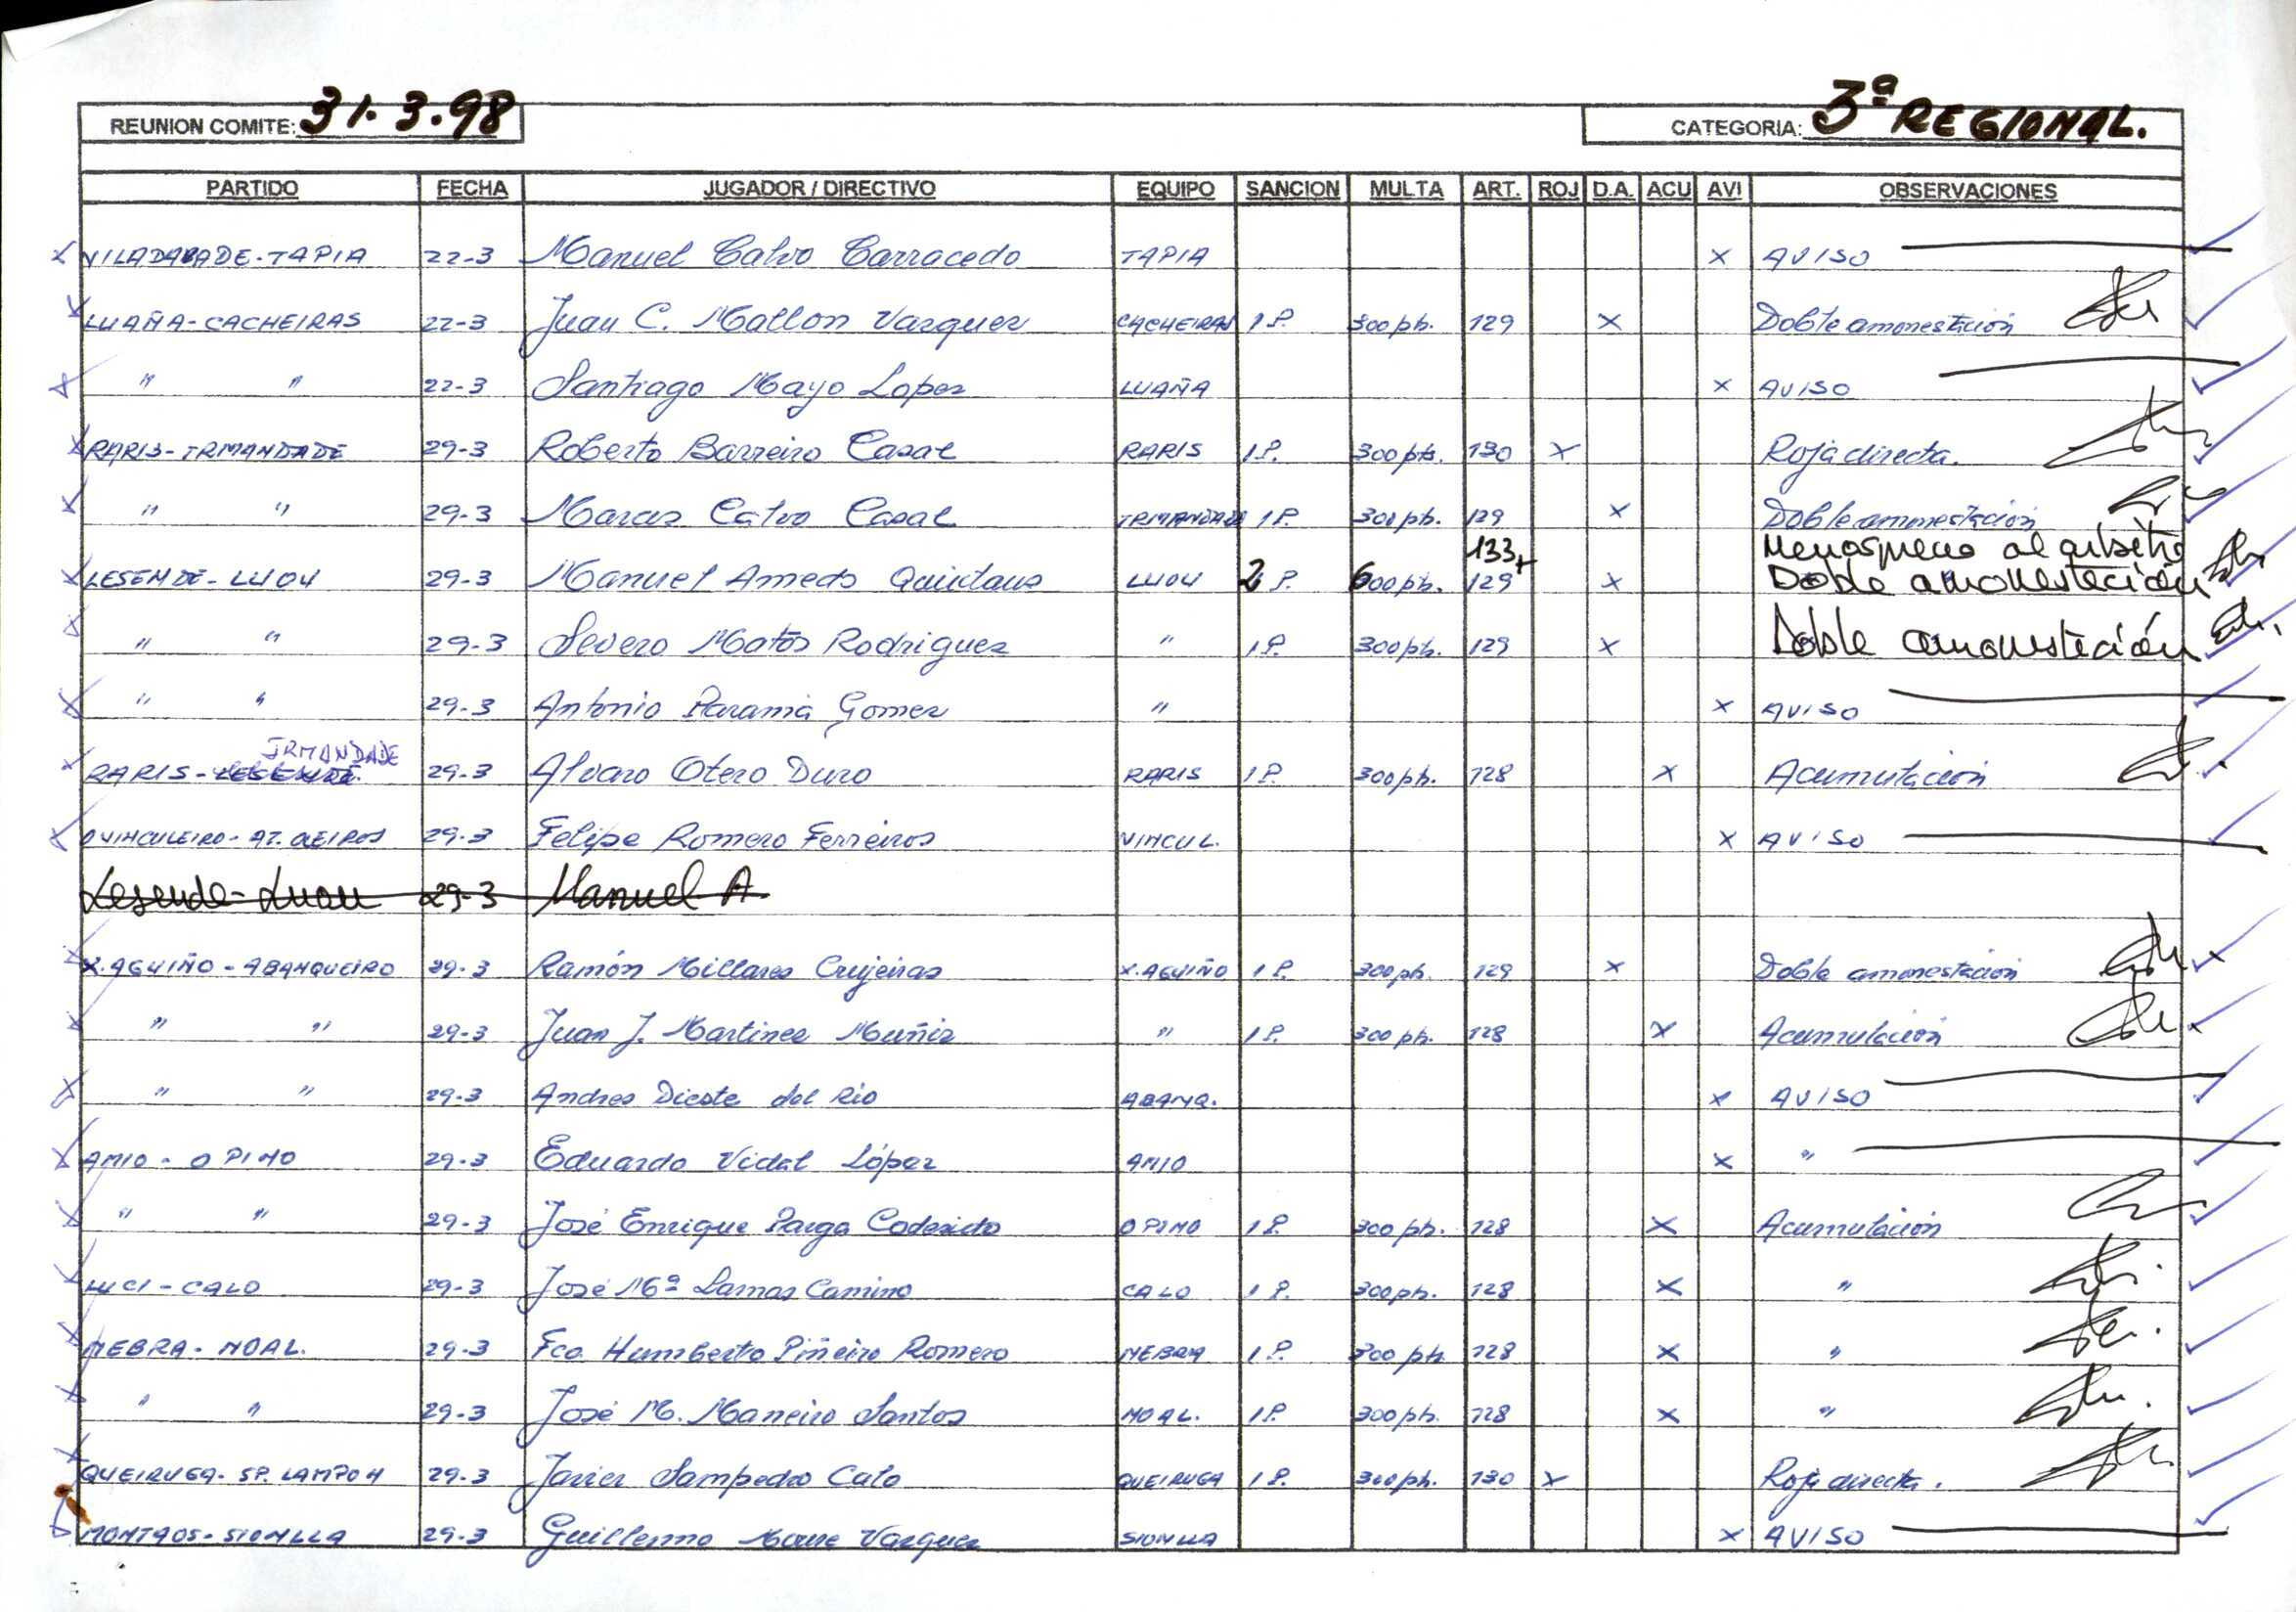 REUNION COMITE: 31.3.98 CATEGORIA: 3ª REGIONAL.
PARTIDO FECHA JUGADOR / DIRECTIVO EQUIPO SANCION MULTA ART. ROJ D.A. ACU AVI OBSERVACIONES
VILADABADE-TAPIA 22-3 Manuel Calvo Carracedo TAPIA x AVISO
LUAÑA-CACHEIRAS 22-3 Juan C. Mallon Vazquez CACHEIRAS 1 P. 300 pts. 129 x Doble amonestación
" " 22-3 Santiago Mayo Lopez LUAÑA x AVISO
RARIS-IRMANDADE 29-3 Roberto Barreiro Casal RARIS 1 P. 300 pts. 130 x Roja directa.
" " 29-3 Marcos Calvo Casal IRMANDADE 1 P. 300 pts. 129 x Doble amonestación
133+ Menosprecio al arbitro
LESENDE-LUOU 29-3 Manuel Amedo Quintans LUOU 2 P. 600 pts. 129 x Doble amonestación
" " 29-3 Severo Matos Rodriguez " 1 P. 300 pts. 129 x Doble amonestación
" " 29-3 Antonio Gomez " x AVISO
IRMANDADE
RARIS-LESENDE 29-3 Alvaro Otero Duro RARIS 1 P. 300 pts. 128 x Acumulación
O VINCULEIRO-AT. OEIROS 29-3 Felipe Romero Ferreiros VINCUL. x AVISO
Lesende-Luou 29-3 Manuel A.
X. AGUIÑO-ABANQUEIRO 29-3 Ramón Millares Crujeiras X. AGUIÑO 1 P. 300 pts. 129 x Doble amonestación
" " 29-3 Juan J. Martinez Muñiz " 1 P. 300 pts. 128 x Acumulación
" " 29-3 Andres Dieste del Rio ABANQ. x AVISO
AMIO-O PINO 29-3 Eduardo Vidal López AMIO x "
" " 29-3 José Enrique Parga Codesido O PINO 1 P. 300 pts. 128 x Acumulación
LUCI-CALO 29-3 José Mª Lamas Camino CALO 1 P. 300 pts. 128 x "
NEBRA-NOAL. 29-3 Fco. Humberto Piñeiro Romero NEBRA 1 P. 300 pts 128 x "
" " 29-3 José M. Maneiro Santos NOAL. 1 P. 300 pts. 128 x "
QUEIRUGA-SP. LAMPON 29-3 Javier Sampedro Calo QUEIRUGA 1 P. 300 pts. 130 x Roja directa.
MONTAOS-SIONLLA 29-3 Guillermo Vazquez SIONLLA x AVISO